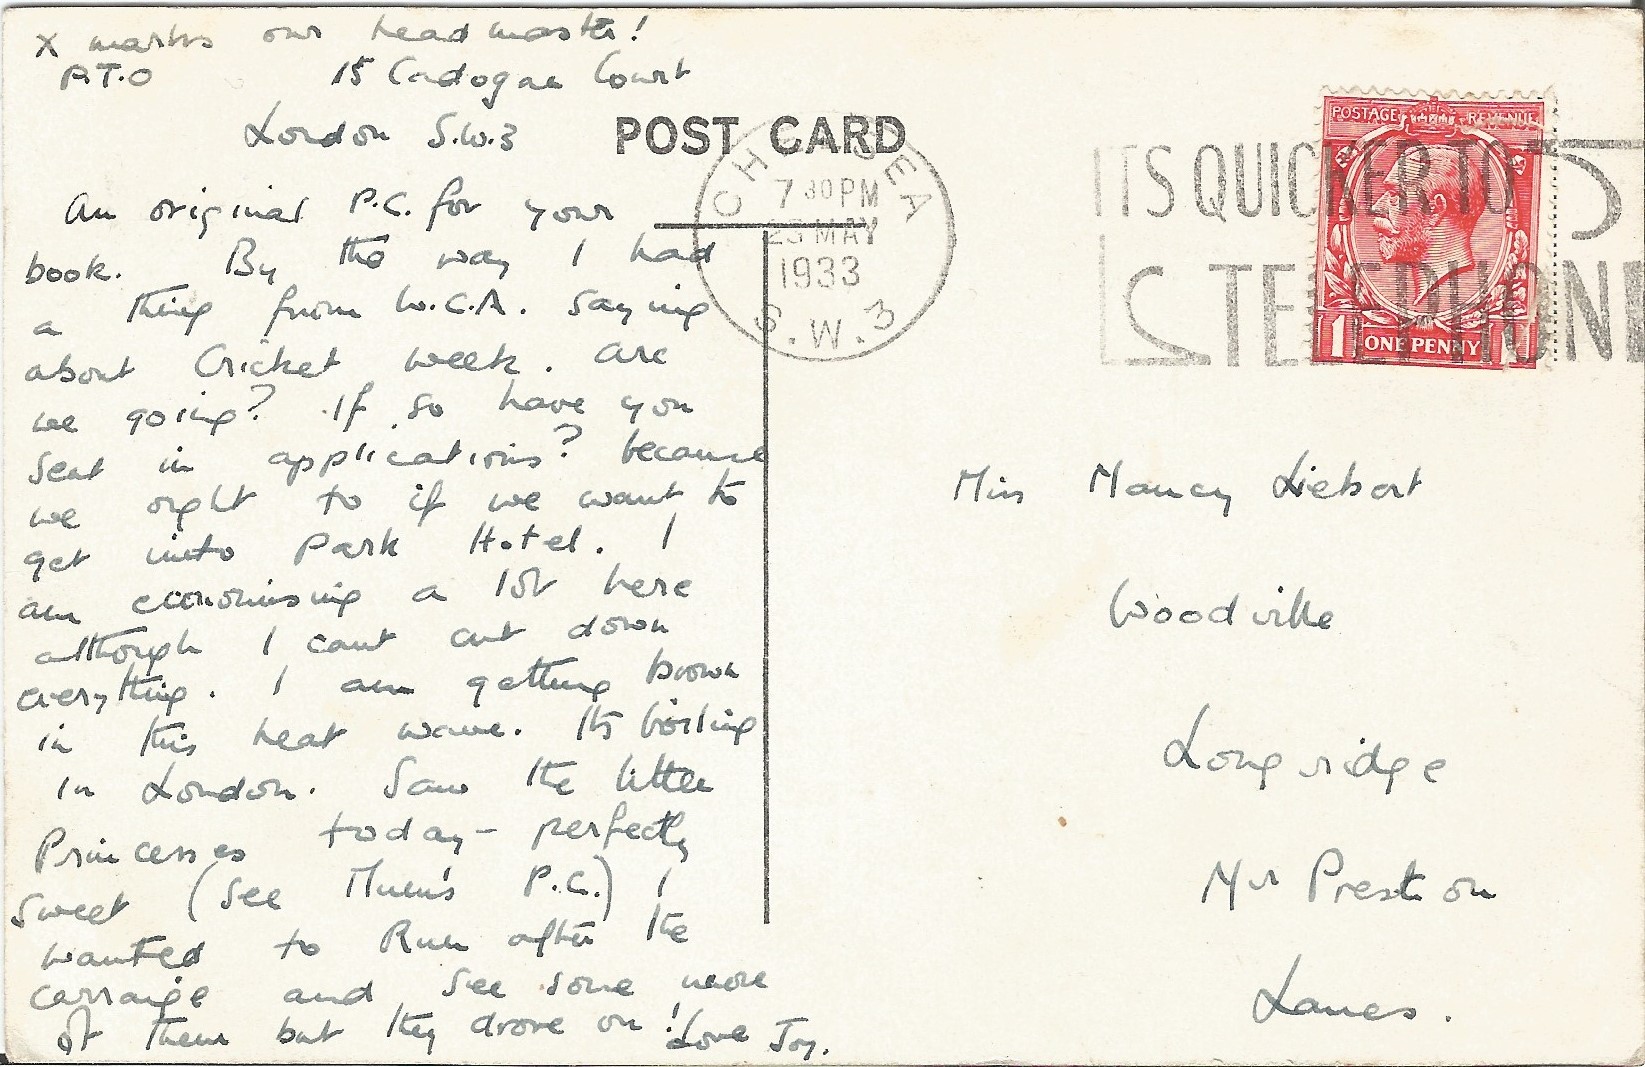 x marks our headmaster!
P.T.O
15 Cadogan Court
London S.W.3
POST CARD
An original P.C. for your
book. By the way I had
a thing from W.C.A. saying
about Cricket week. Are
we going? If so have you
sent in applications? because
we ought to if we want to
get into Park Hotel. I
am economising a lot here
although I cant cut down
everything. I am getting brown
in this heat wave. Its boiling
in London. Saw the little
Princesses today - perfectly
sweet (see Mum's P.C.) I
wanted to Run after the
carraige and see some more
of them but they drove on!
Love Joy.
CHELSEA
7 30 PM
23 MAY
1933
S.W.3
ITS QUICKER TO
TELEPHONE
POSTAGE REVENUE
1 ONE PENNY 1
Miss Nancy Liebert
Woodville
Longridge
Nr Preston
Lancs.